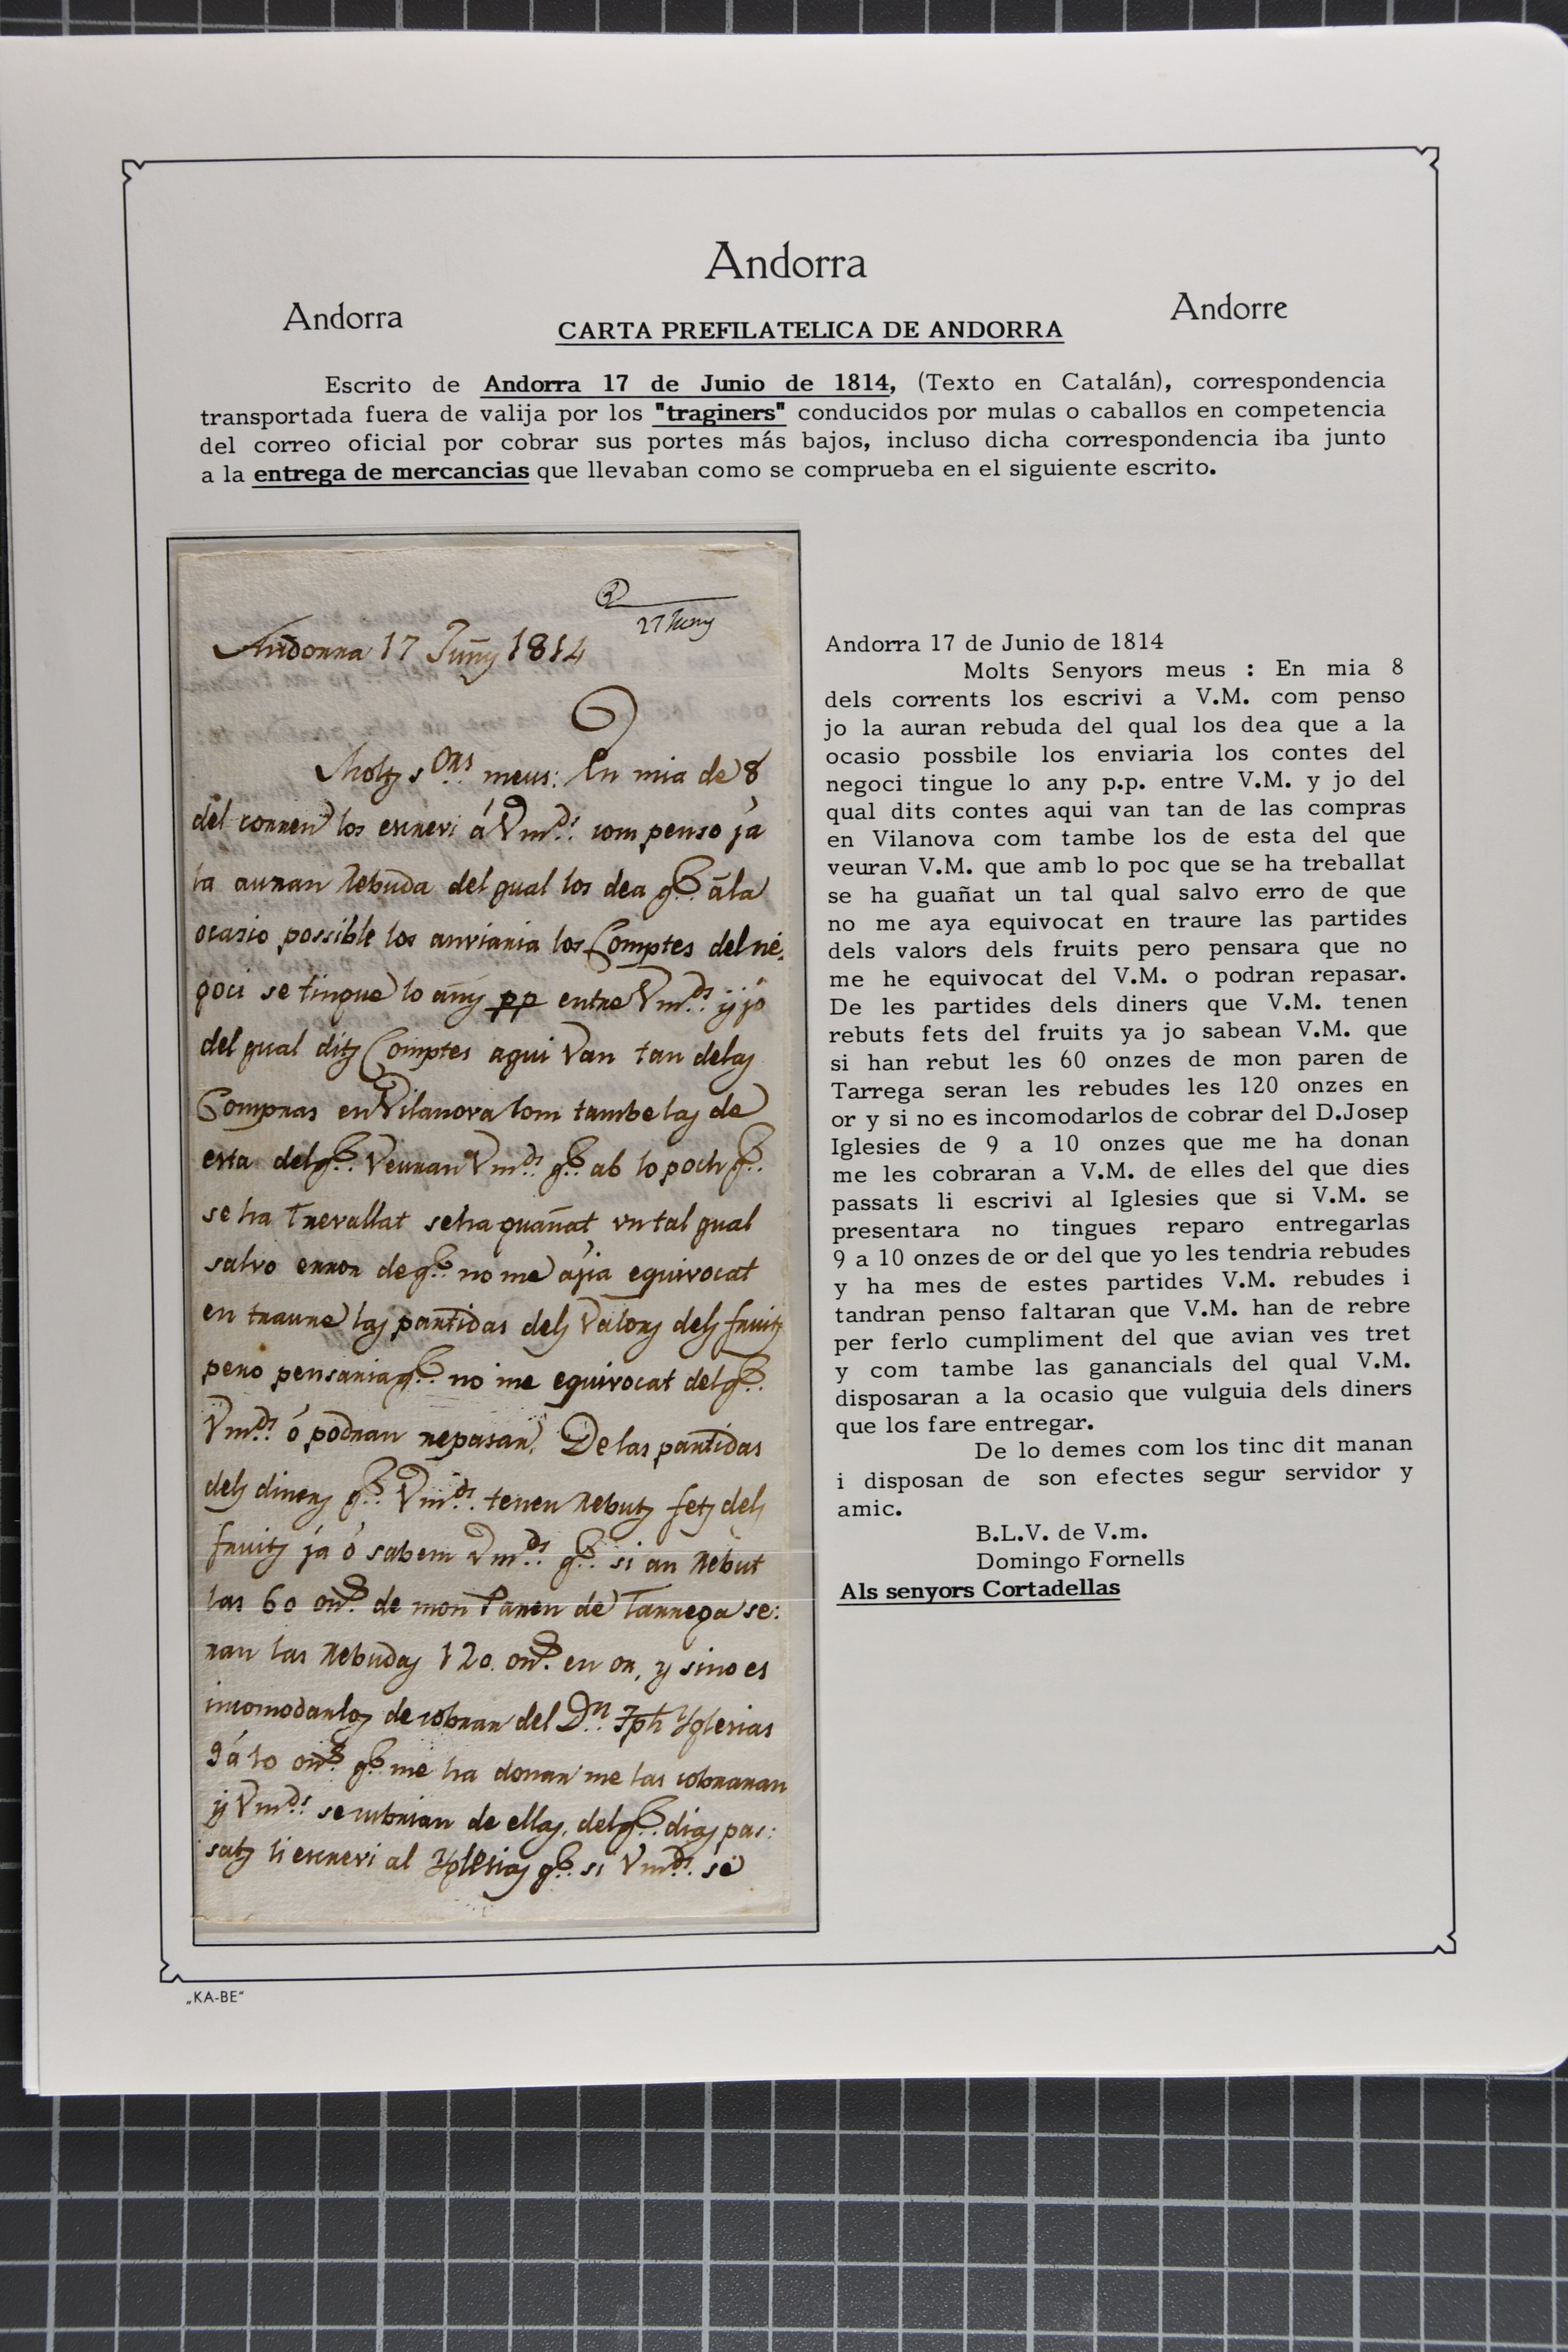 Andorra
Andorra
Andorre
CARTA PREFILATELICA DE ANDORRA
Escrito de Andorra 17 de Junio de 1814, (Texto en Catalán), correspondencia
transportada fuera de valija por los "traginers" conducidos por mulas o caballos en competencia
del correo oficial por cobrar sus portes más bajos, incluso dicha correspondencia iba junto
a la entrega de mercancias que llevaban como se comprueba en el siguiente escrito.
27 Juny
Andorra 17 Juñy 1814
Molts s.ors meus: En mia de 8
del corrent los escrevi á Vm.ds com penso ja
la auran Rebuda del qual los dea q.e á la
ocasio possible los anviaria los Comptes del né-
goci se tingue lo añy pp entre Vm.ds y jo
del qual dits Comptes aqui Van tan delas
Compras en Vilanova Com tambe las de
esta del q.e Veuran Vm.ds q.e ab lo poch q.e
se ha Trevallat se ha guañat un tal qual
salvo error de q.e no me ájia equivocat
en traure las partidas dels Valors dels fruits
pero pensaria q.e no me equivocat del q.e
Vm.ds ó podran repasar. De las partidas
dels diners q.e Vm.ds tenen Rebuts fets dels
fruits já ó sabem Vm.ds q.e si an Rebut
las 60 on.s de mon Paren de Tarrega se:
ran las Rebudas 120. on.s en or, y sino es
incomodarlos de cobrar del D.n Jph Yglesias
9 á 10 on.s q.e me ha donar me las cobraran
y Vm.ds se cubrian de ellas, del q.e dias pas:
sats li escrevi al Yglesias q.e si Vm.ds se
Andorra 17 de Junio de 1814
Molts Senyors meus : En mia 8
dels corrents los escrivi a V.M. com penso
jo la auran rebuda del qual los dea que a la
ocasio possbile los enviaria los contes del
negoci tingue lo any p.p. entre V.M. y jo del
qual dits contes aqui van tan de las compras
en Vilanova com tambe los de esta del que
veuran V.M. que amb lo poc que se ha treballat
se ha guañat un tal qual salvo erro de que
no me aya equivocat en traure las partides
dels valors dels fruits pero pensara que no
me he equivocat del V.M. o podran repasar.
De les partides dels diners que V.M. tenen
rebuts fets del fruits ya jo sabean V.M. que
si han rebut les 60 onzes de mon paren de
Tarrega seran les rebudes les 120 onzes en
or y si no es incomodarlos de cobrar del D.Josep
Iglesies de 9 a 10 onzes que me ha donan
me les cobraran a V.M. de elles del que dies
passats li escrivi al Iglesies que si V.M. se
presentara no tingues reparo entregarlas
9 a 10 onzes de or del que yo les tendria rebudes
y ha mes de estes partides V.M. rebudes i
tandran penso faltaran que V.M. han de rebre
per ferlo cumpliment del que avian ves tret
y com tambe las ganancials del qual V.M.
disposaran a la ocasio que vulguia dels diners
que los fare entregar.
De lo demes com los tinc dit manan
i disposan de son efectes segur servidor y
amic.
B.L.V. de V.m.
Domingo Fornells
Als senyors Cortadellas
„KA-BE“